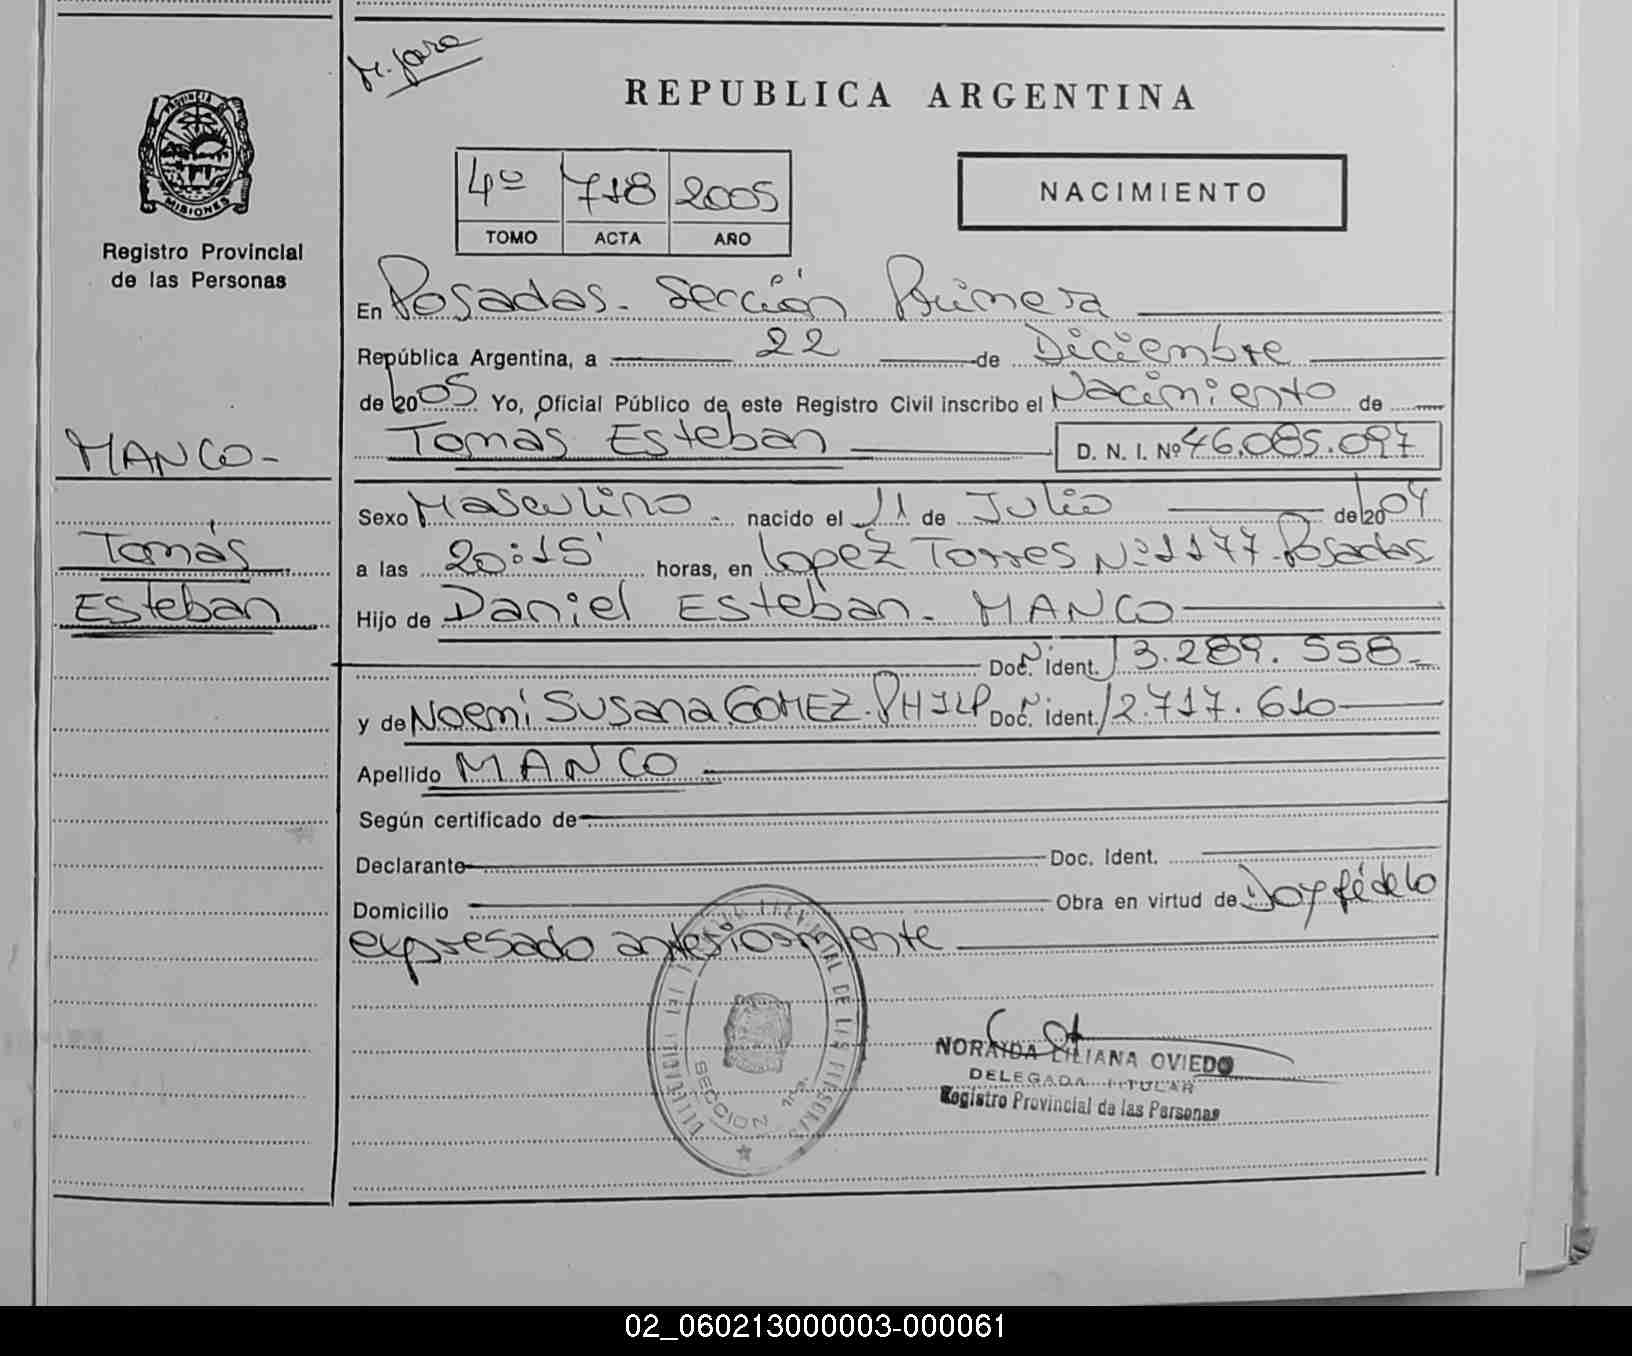 M. Jara
REPUBLICA ARGENTINA
PROVINCIA DE
MISIONES
4º 718 2005
TOMO ACTA AÑO
NACIMIENTO
Registro Provincial
de las Personas
En Posadas. Sección Primera
República Argentina, a 22 de Diciembre
de 2005 Yo, Oficial Público de este Registro Civil inscribo el Nacimiento de
Tomás Esteban D. N. I. Nº 46.085.097
MANCO-
Sexo Masculino. nacido el 11 de Julio de 2004
Tomás
a las 20:15' horas, en Lopez Torres Nº 1177. Posadas
Esteban
Hijo de Daniel Esteban. MANCO
Doc. Ident. 13.289.558-
y de Noemi Susana GOMEZ. PHILP Doc. Ident. 12.717.610
Apellido MANCO
Según certificado de
Declarante Doc. Ident.
Domicilio Obra en virtud de Doy fé de lo
expresado anteriormente
PROVINCIAL DE LAS PERSONAS
SECCION 1ra.
NORAIDA LILIANA OVIEDO
DELEGADA TITULAR
Registro Provincial de las Personas
02_060213000003-000061